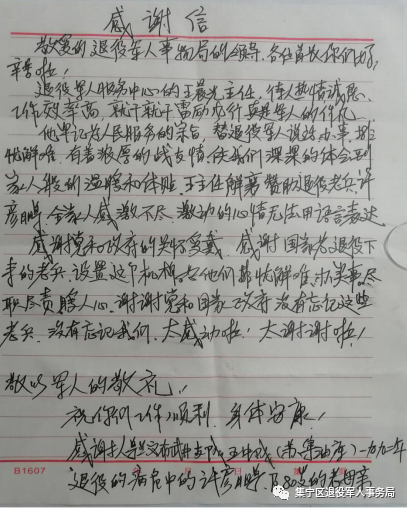 感谢信
敬爱的退役军人事物局的领导、各位首长你们好，
辛苦啦！
退役军人服务中心的王晨光主任，待人热情诚恳、
工作效率高，说干就干雷厉风行兵是军人的作风
他牢记为人民服务的宗旨，替退役军人说话办事，排
忧解难，有着敦厚的战友情，使我们深深的体会到
家人般的温暖和体贴，王主任解囊赞助退役老兵许
彦明，全家人感激不尽，激动的心情无法用语言表达
感谢党和政府的关怀爱戴，感谢国家为退役下
来的老兵，设置这个机构，为他们排忧解难，办实事，尽
职尽责暖人心，谢谢党和国家、政府没有忘记这些
老兵，没有忘记我们，太感动啦！太谢谢啦！
敬以军人的敬礼！
祝你们工作顺利，身体安康！
感谢人 一九九二年
退役的病危中的许彦明及80岁的老母亲
B1607
集宁区退役军人事务局